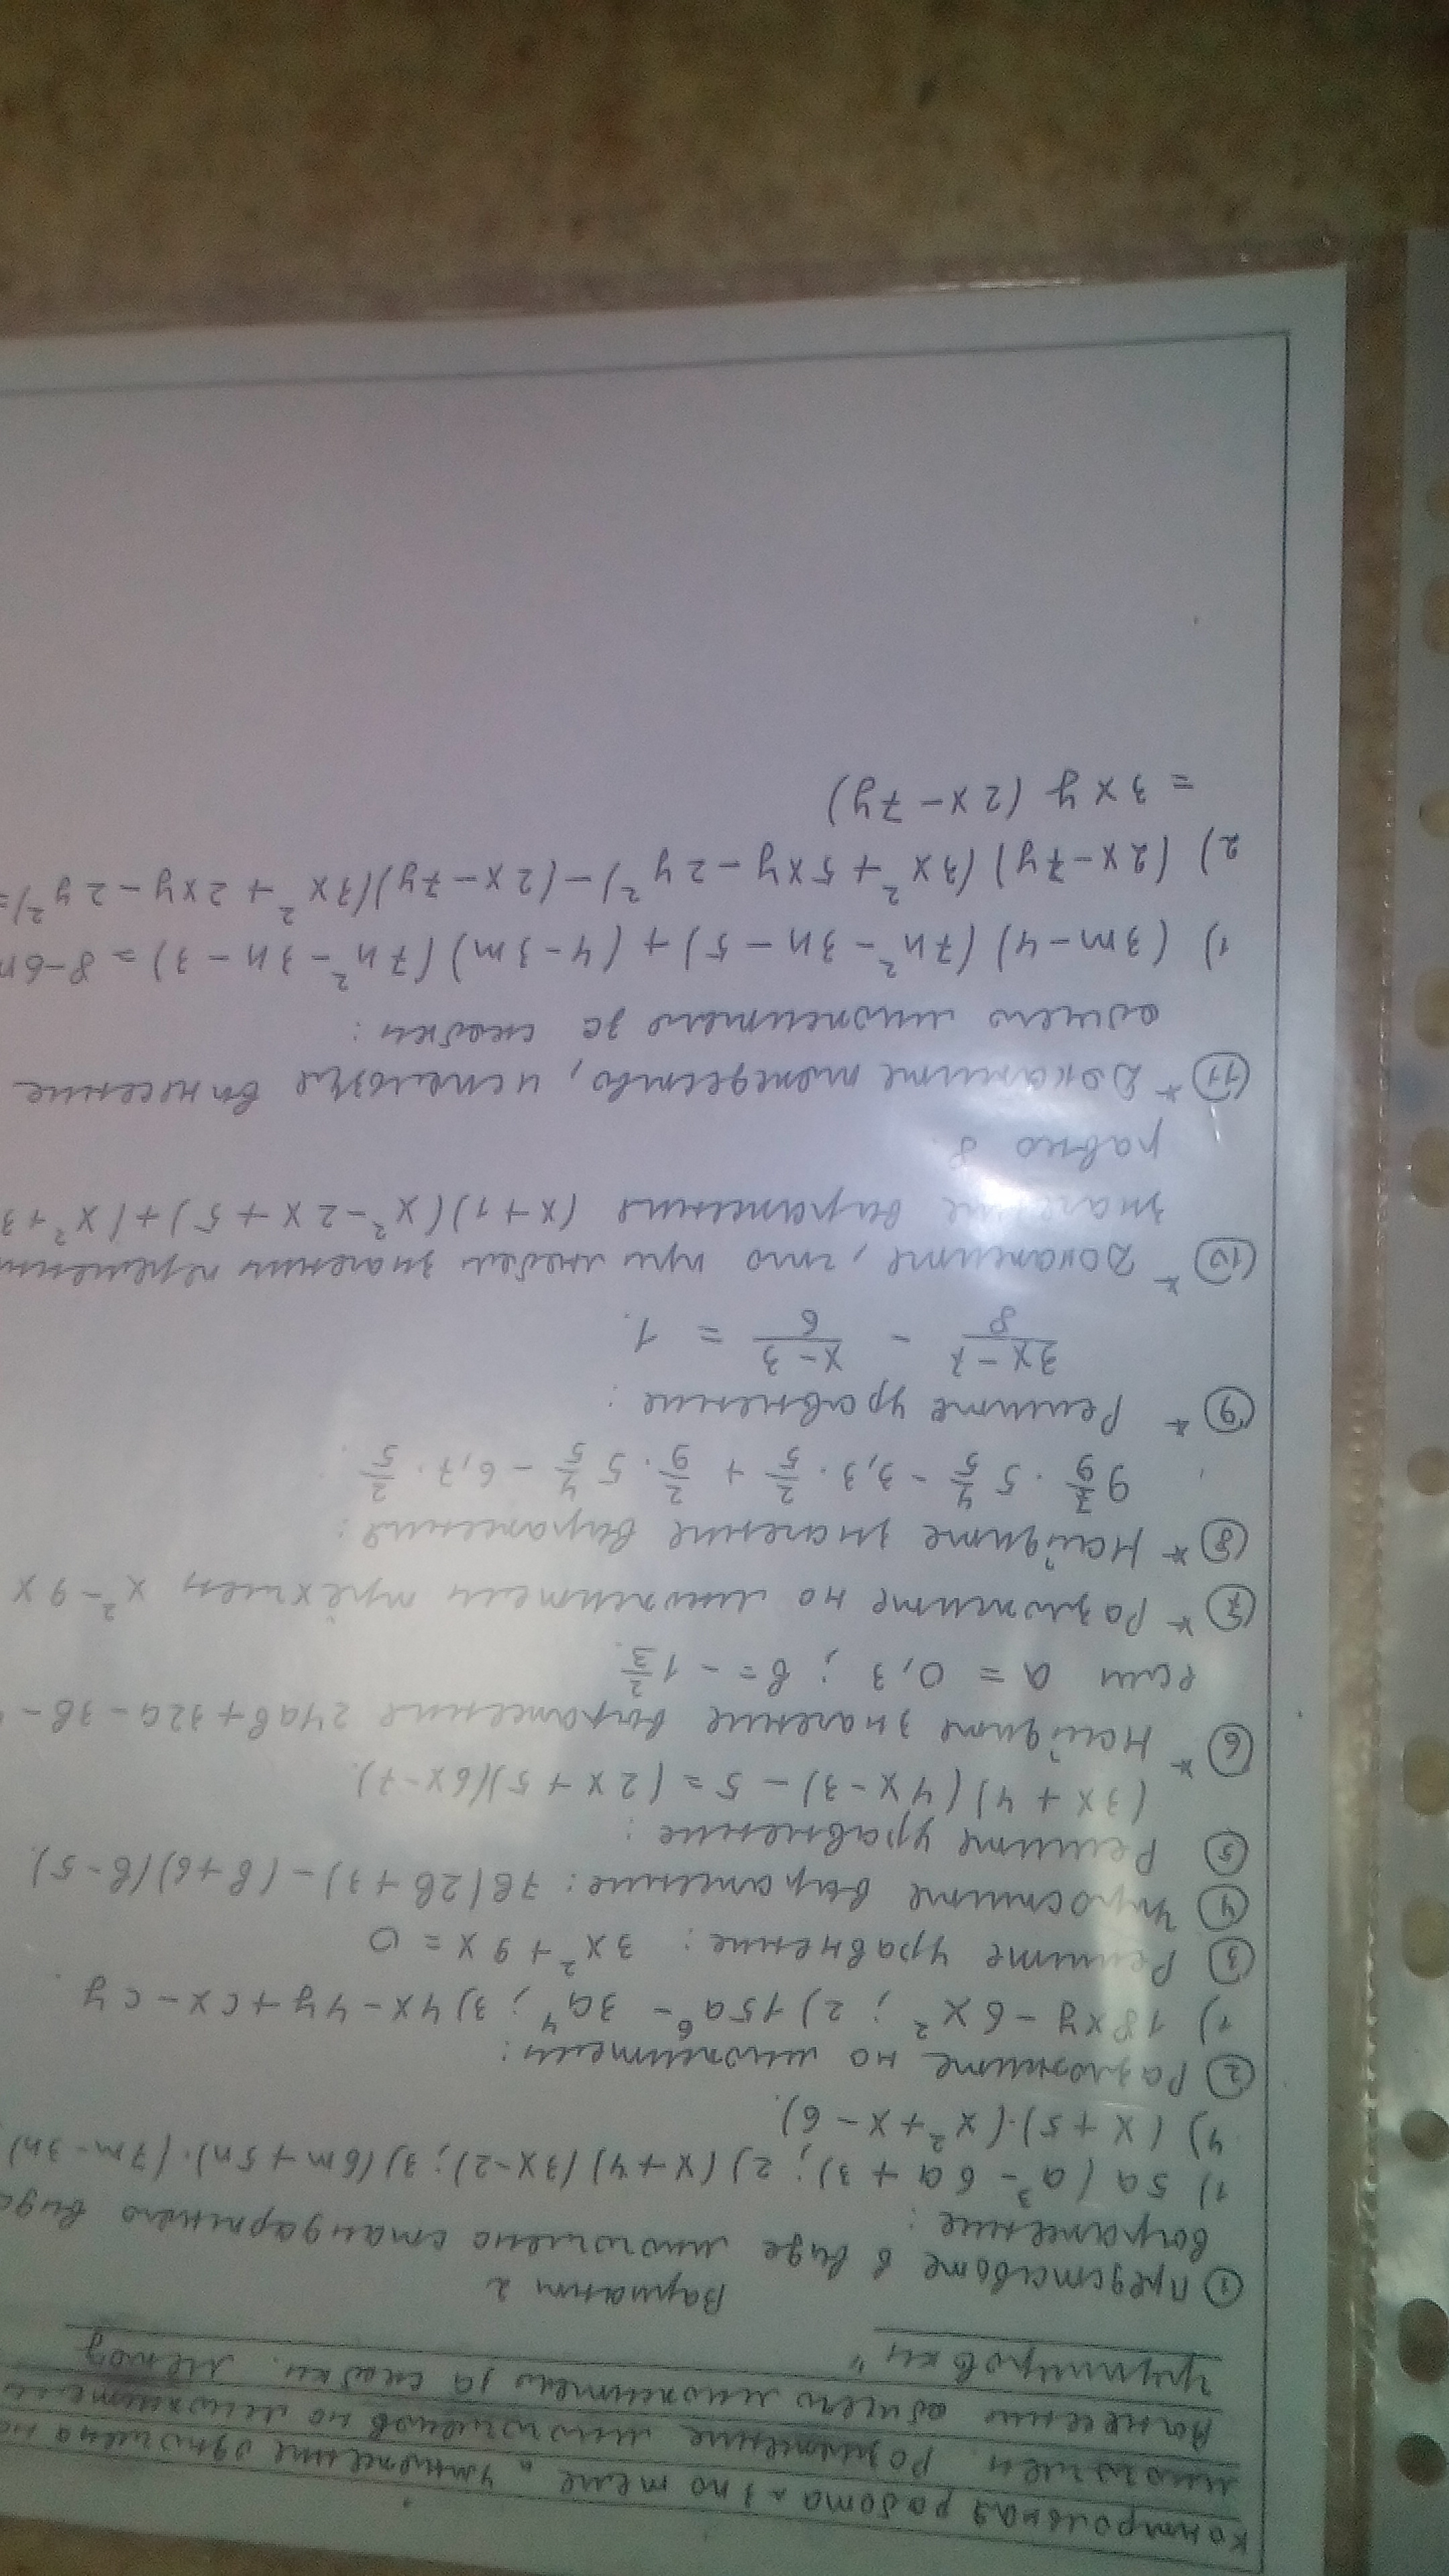 Контрольная работа №3 по теме „Умножение одночлена на
многочлен. Разложение многочленов на множители
Вынесение общего множителя за скобки. Метод
группировки"
Вариант 2
① Представьте в виде многочлена стандартного вида
выражение:
1) 5a(a³ - 6a + 3); 2) (x+4)(3x-2); 3) (6m+5n)·(7m-3n)
4) (x+5)·(x²+x-6).
② Разложите на множители:
1) 18xy - 6x²; 2) 15a⁶ - 3a⁴; 3) 4x - 4y + cx - cy.
③ Решите уравнение: 3x² + 9x = 0
④ Упростите выражение: 7b(2b+3) - (b+6)(b-5).
⑤ Решите уравнение:
(3x+4)(4x-3) - 5 = (2x+5)(6x-7).
⑥* Найдите значение выражения 24ab + 32a - 3b -
если a = 0,3; b = -1 2/3.
⑦* Разложите на множители трёхчлен x² - 9x
⑧* Найдите значение выражения:
9 7/9 · 5 4/5 - 3,3 · 2/5 + 2/9 · 5 4/5 - 6,7 · 2/5.
⑨* Решите уравнение:
(3x-7)/8 - (x-3)/6 = 1.
⑩* Докажите, что при любом значении
значение выражения (x+1)(x²-2x+5)+(x²+3
равно 8.
⑪* Докажите тождество, используя вынесение
общего множителя за скобки:
1) (3m-4)(7n²-3n-5)+(4-3m)(7n²-3n-3) = 8-6m
2) (2x-7y)(3x²+5xy-2y²)-(2x-7y)(3x²+2xy-2y²)=
= 3xy(2x-7y)